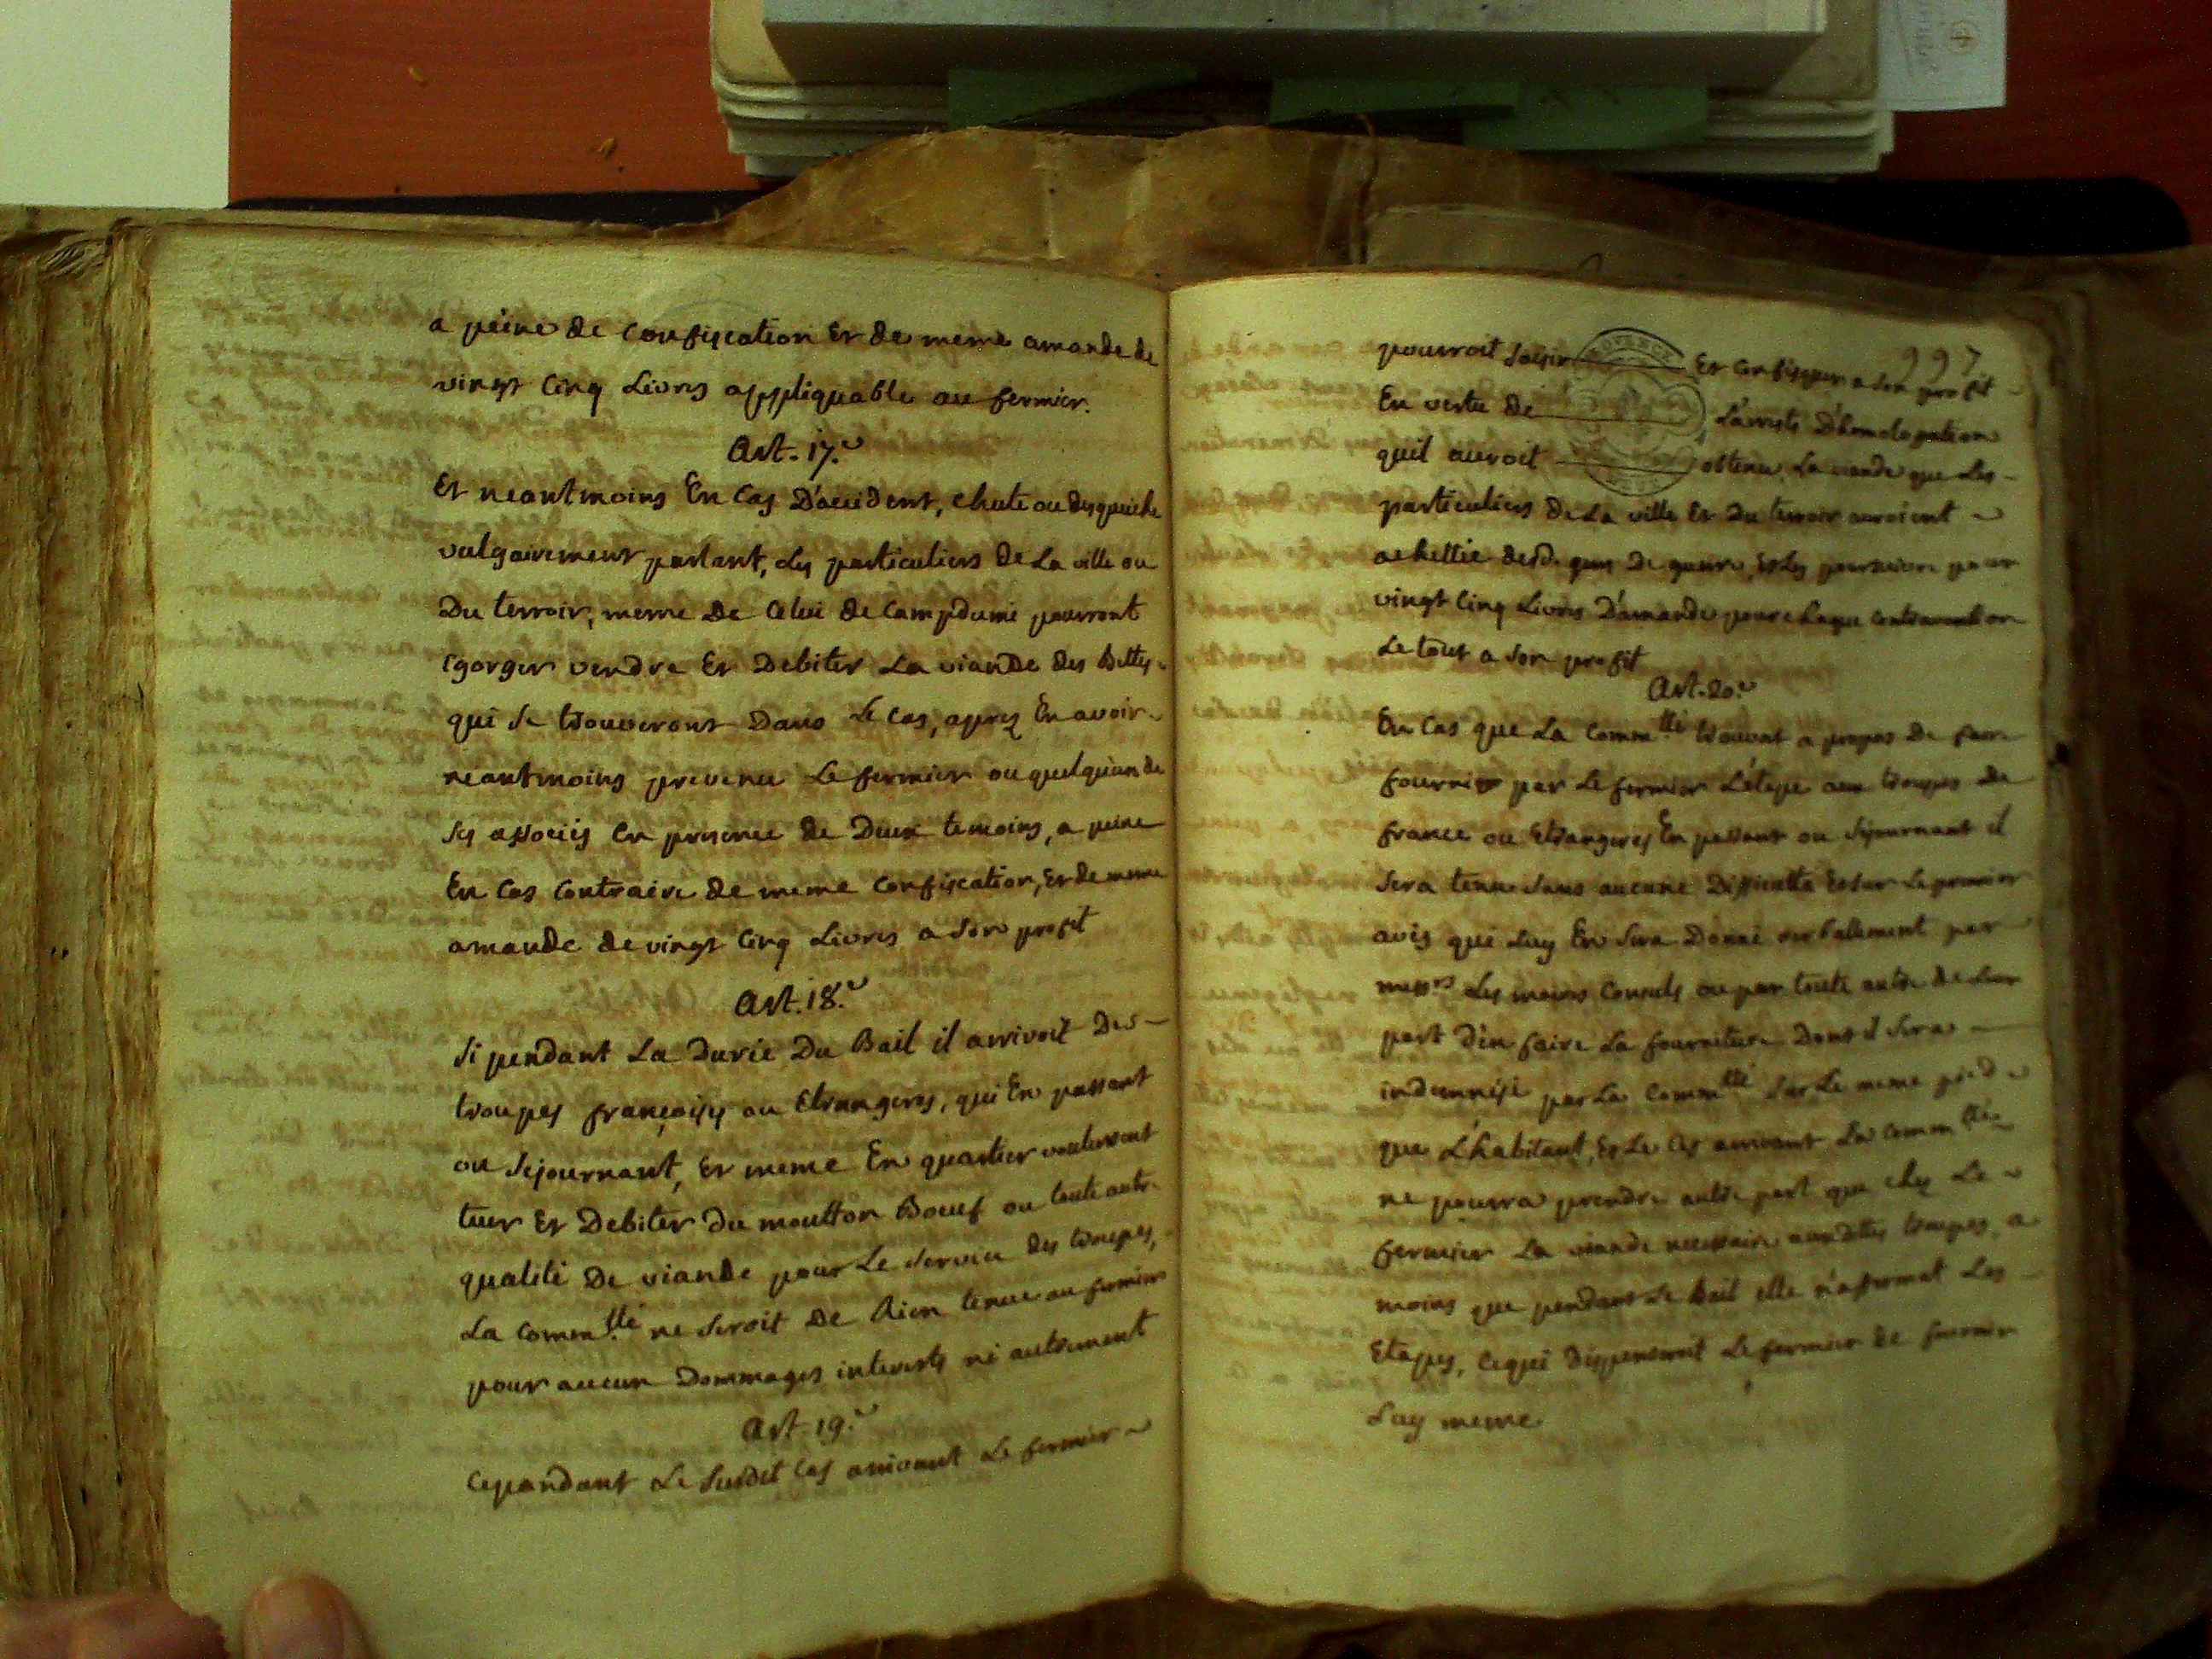 a peine de confiscation Et de meme amande de
vingt cinq Livres appliquable au fermier.
Art. 17.e
Et neantmoins En Cas D'accident, chute ou
vulgairement parlant, les particuliers de La ville ou
Du terroir, meme De Celui de Campdumi pourront
Egorger vendre Et Debiter La viande des Bettes
qui se trouveront Dans Le Cas, aprez En avoir
neantmoins prevenu Le fermier ou quelqu'un de
ses associés En presence de Deux temoins, a peine
En Cas Contraire de meme Confiscation, Et de meme
amande de vingt Cinq Livres a son profit
Art. 18.e
Si pendant La Durée Du Bail il arrivoit Des
troupes françoises ou Etrangeres, qui En passant
ou Sejournant, Et meme En quartier voulussent
tuer Et Debiter Du moutton Boeuf ou toute autre
qualité De viande pour Le service des troupes,
La Comm.tté ne seroit De Rien tenue au fermier
pour aucun Dommages interests ni autrement
Art. 19.e
Cependant Le susdit Cas arrivant Le fermier
997
pourroit saisir Et Confisquer a son profit
En vertu de L'arrets D'homologation
quil auroit obtenu, La viande que Les
particuliers de La ville Et Du terroir auroient
achettée desd. gens De guerre, Et Les poursuivre pour
vingt Cinq Livres D'amande pour chaque contravention
Le tout a son profit
Art. 20.e
En Cas que La Comm.tté trouvat a propos De faire
fournir par Le fermier L'etape aux troupes de
france ou Etrangeres En passant ou sejournant il
sera tenu sans aucune Difficulté Et sur Le premier
avis qui Luy En sera Donné verballement par
mess.rs Les maires Consuls ou par toute autre de Leur
part d'en faire La fourniture Dont il sera
indemnisé par La Comm.tté sur Le meme pied
que L'habitant, Et Le Cas arrivant La Comm.tté
ne pourra prendre autre part que chez Le
fermier La viande necessaire auxdittes troupes, a
moins que pendant Le Bail elle n'affermat Les
Etapes, Cequi dispenseroit Le fermier de fournir
Luy meme